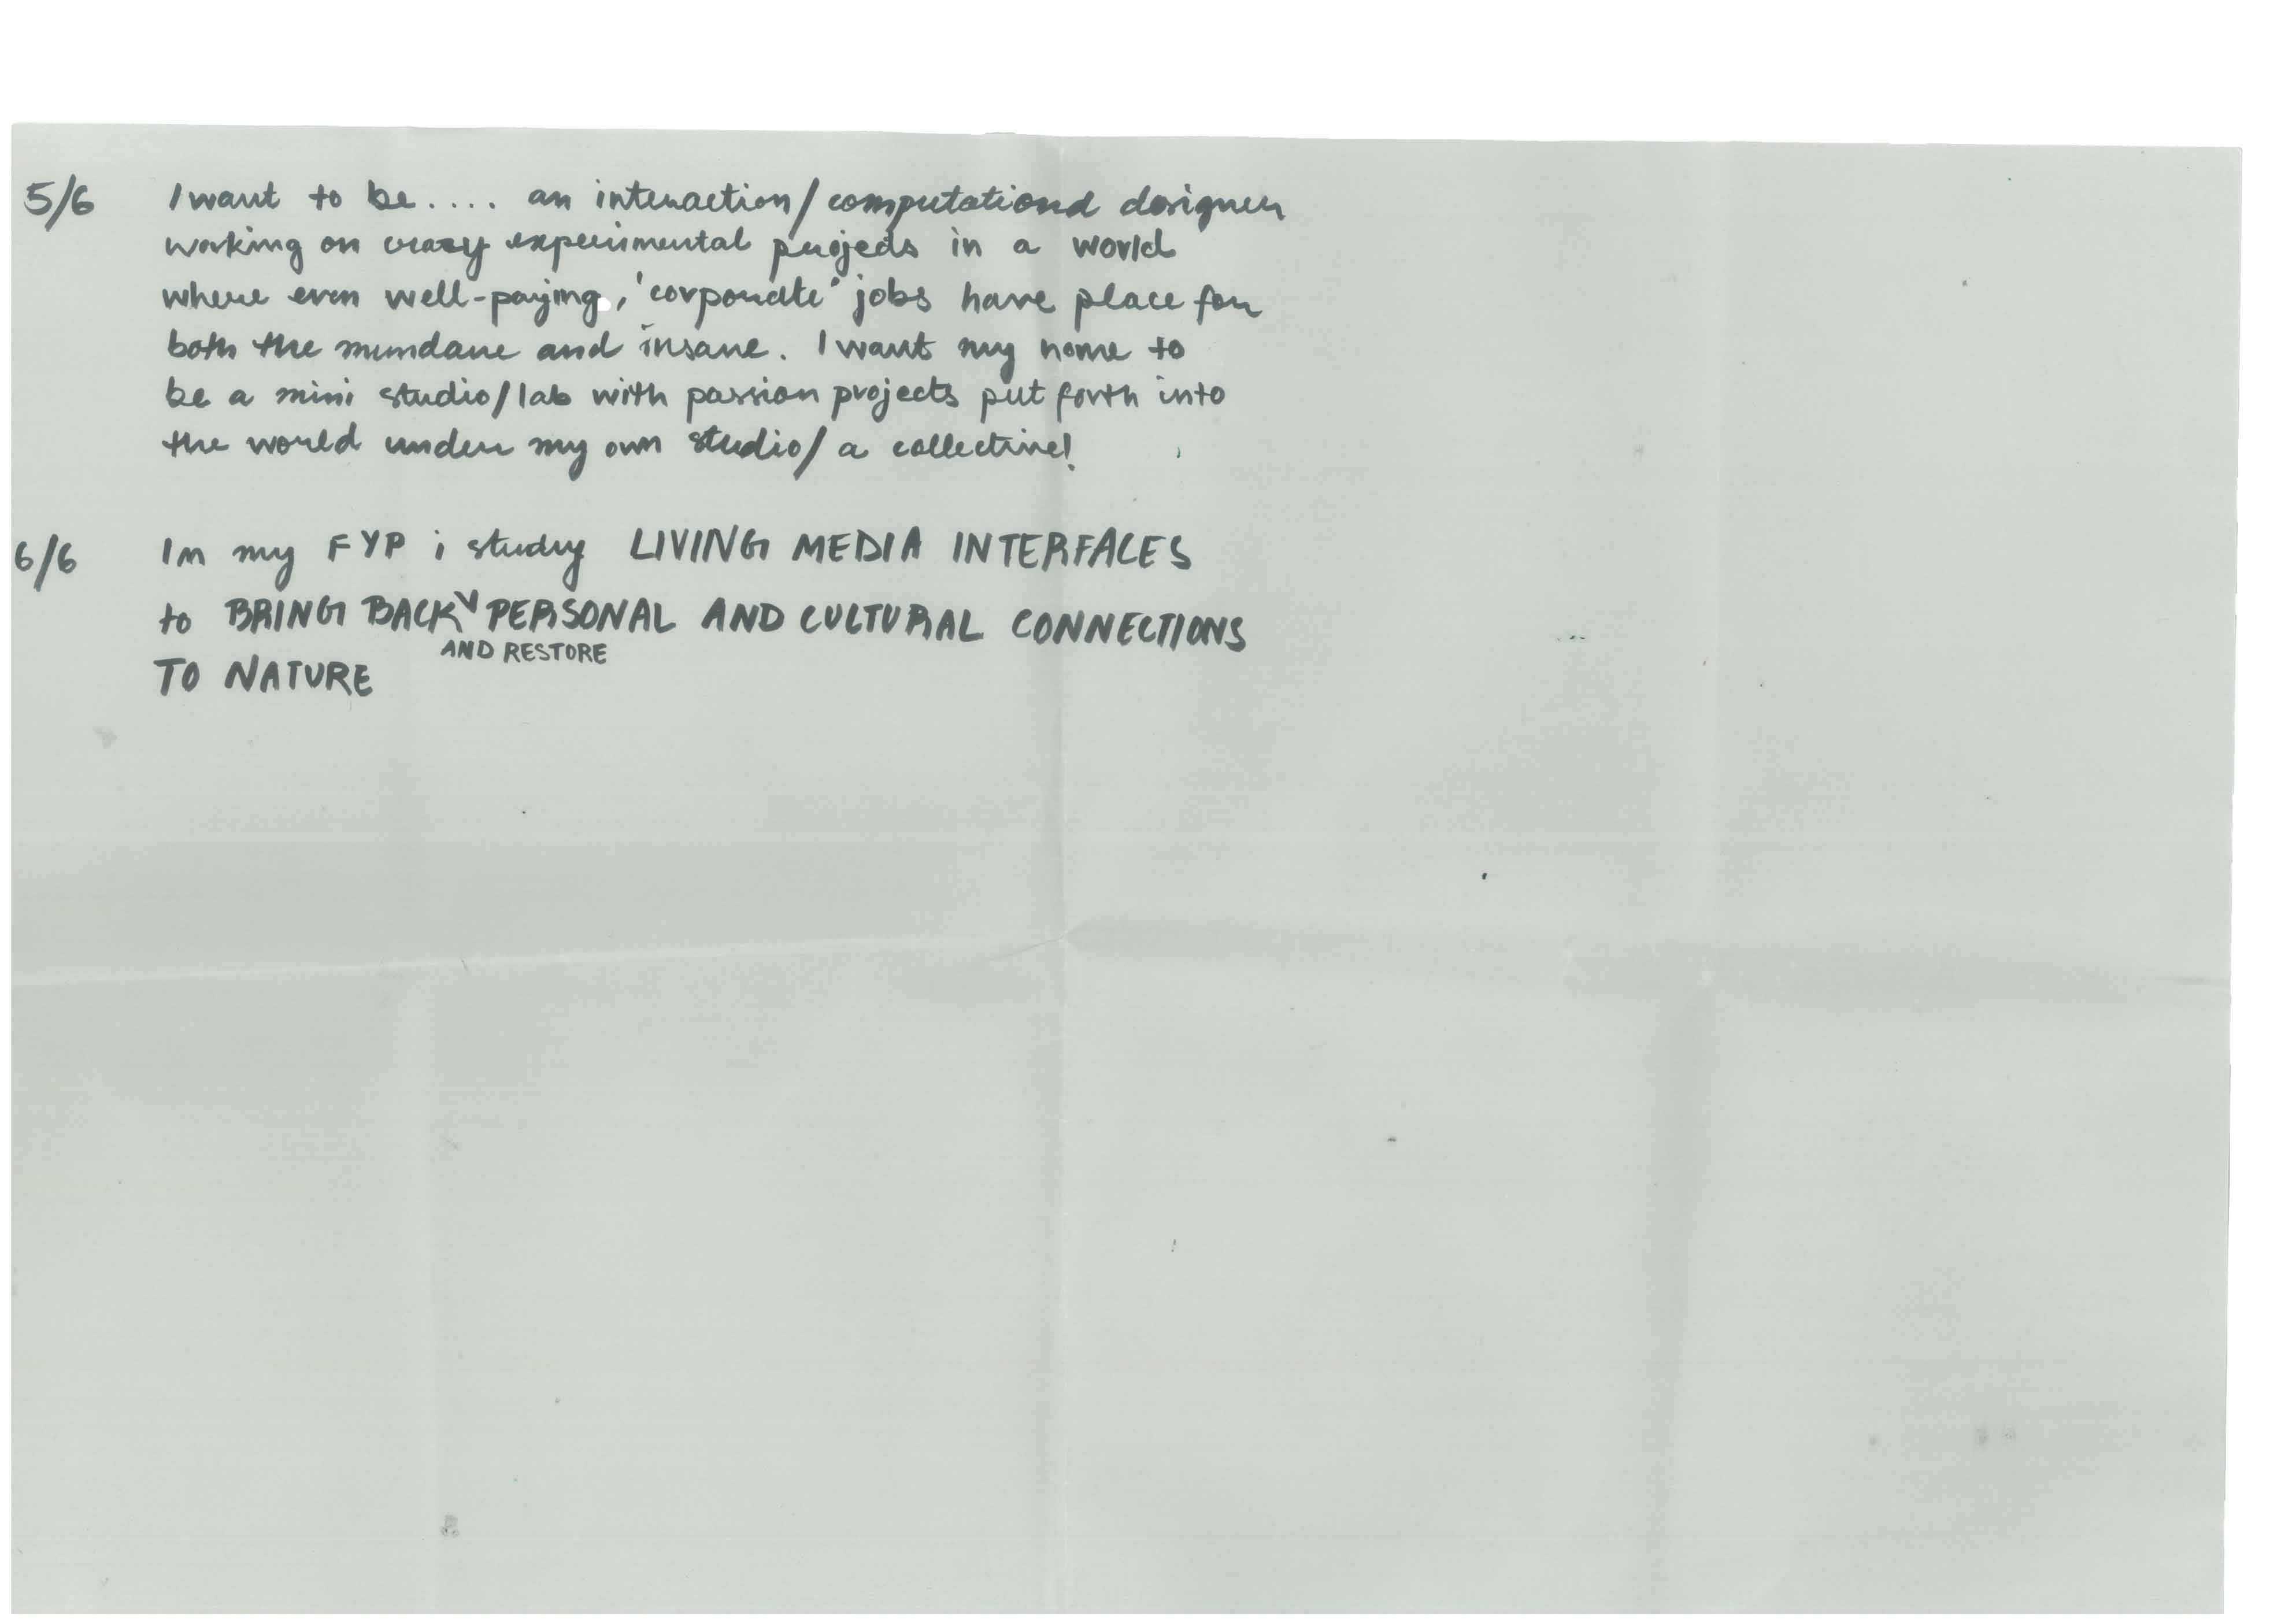 5/6 I want to be.... an interaction/computational designer
working on crazy experimental projects in a world
where even well-paying, 'corporate' jobs have place for
both the mundane and insane. I want my home to
be a mini studio/lab with passion projects put forth into
the world under my own studio/a collective!
6/6 In my FYP i study LIVING MEDIA INTERFACES
to BRING BACK AND RESTORE PERSONAL AND CULTURAL CONNECTIONS
TO NATURE